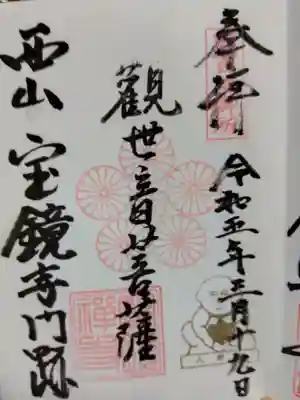 奉拝
令和五年三月十九日
觀世音菩薩
西山 宝鏡寺門跡